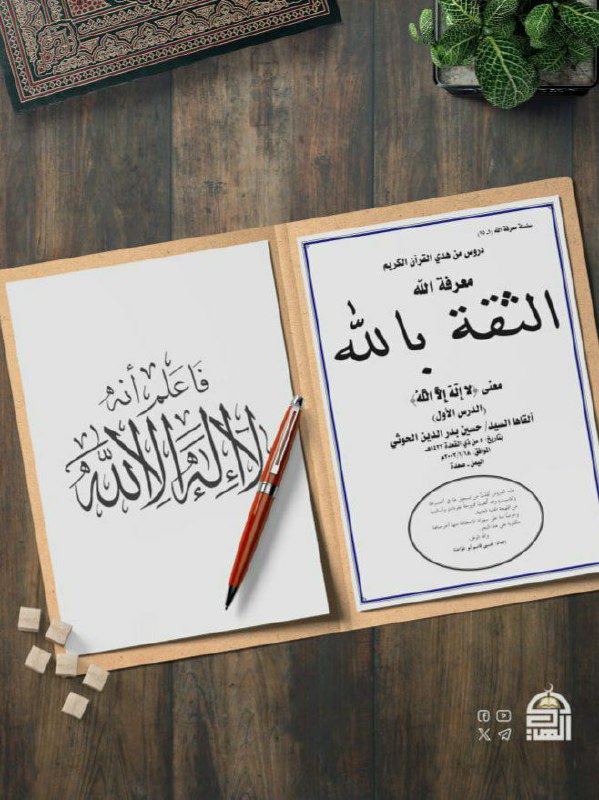 فاعلم أنه
لا إله إلا الله
سلسلة معرفة الله (1 ـ 15)
دروس من هدي القرآن الكريم
معرفة الله
الثقة بالله
معنى ﴿لا إله إلا الله﴾
(الدرس الأول)
ألقاها السيد/ حسين بدر الدين الحوثي
بتاريخ: ٥ من ذي القعدة ١٤٢٢هـ
الموافق: ٢٠٠٢/١/١٨م
اليمن ـ صعدة
والله الموفق